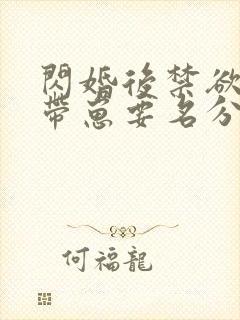 閃婚後禁欲
帶崽要名分
何福龍